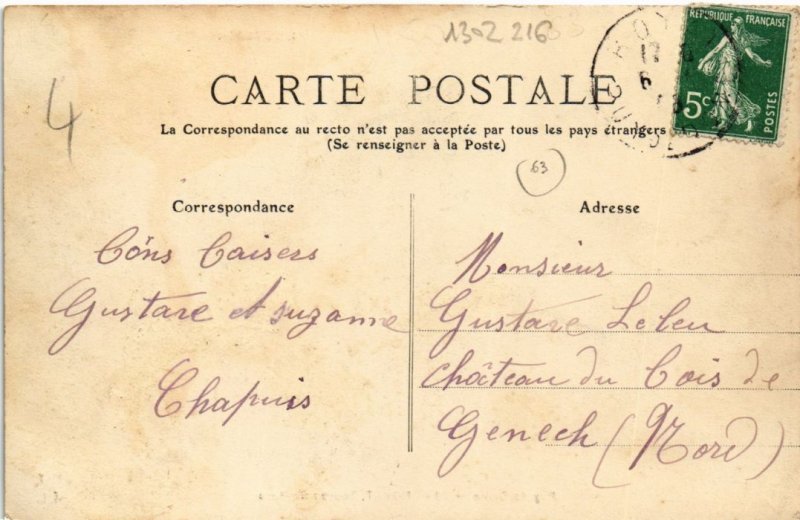 1302 216
RÉPUBLIQUE FRANÇAISE
5c
POSTES
CARTE POSTALE
4
La Correspondance au recto n'est pas acceptée par tous les pays étrangers
(Se renseigner à la Poste)
63
Correspondance
Bons Baisers
Gustave et suzanne
Chapuis
Adresse
Monsieur
Gustave Leleu
château du Bois de
Genech (Nord)